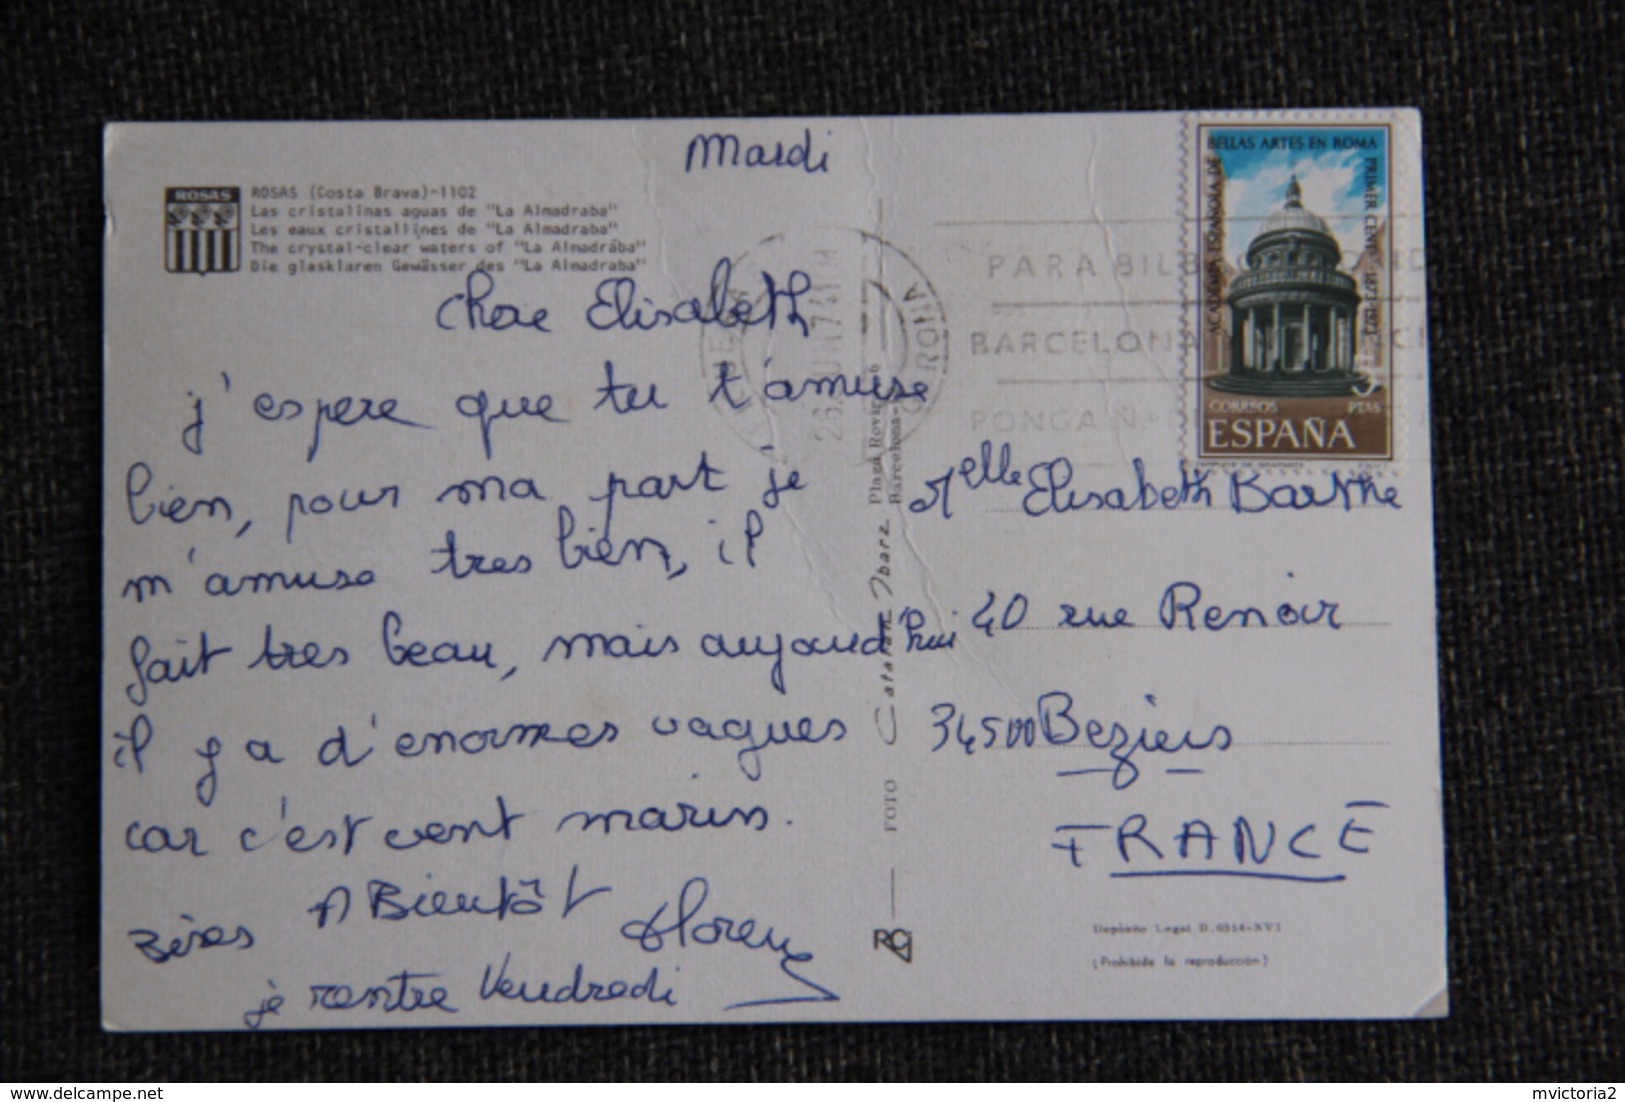 Mardi
ROSAS
ROSAS (Costa Brava)-1102
Las cristalinas aguas de "La Almadraba"
Les eaux cristallines de "La Almadraba"
The crystal-clear waters of "La Almadraba"
Die glasklaren Gewässer des "La Almadraba"
Chere Elisabeth
j'espere que tu t'amuse
bien, pour ma part je
m'amuse tres bien, il
fait tres beau, mais aujourd'hui
il y a d'enormes vagues
car c'est vent marin.
Bises A Bientôt
je rentre Vendredi
FOTO
Plaza Rovira
Barcelona
ACADEMIA ESPAÑOLA DE
BELLAS ARTES EN ROMA
PRIMER CENT. 1873-1973
3
CORREOS PTAS
ESPAÑA
PARA
BARCELONA
PONGA N.º
Melle Elisabeth Barthe
40 rue Renoir
34500 Beziers
FRANCE
Depósito Legal B. 6514-XVI
(Prohibida la reproducción)
mvictoria2